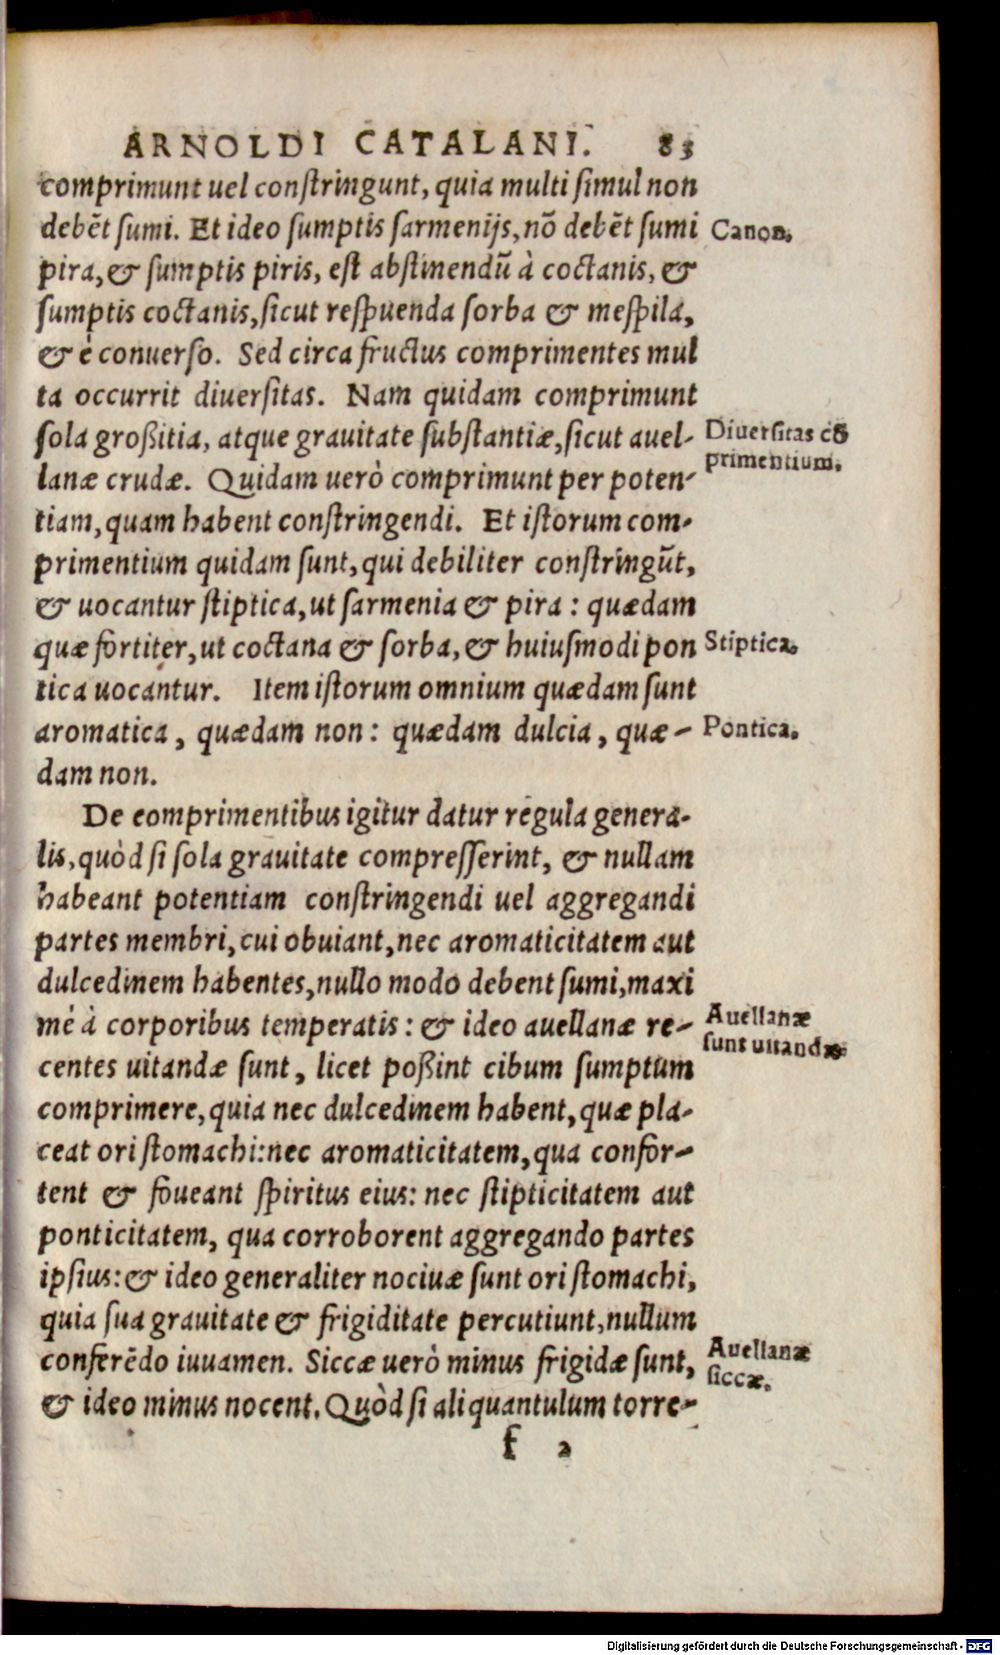 ARNOLDI CATALANI. 83
comprimunt uel constringunt, quia multi simul non
debēt sumi. Et ideo sumptis sarmenijs, nō debēt sumi
Canon.
pira, & sumptis piris, est abstinendū à coctanis, &
sumptis coctanis, sicut respuenda sorba & mespila,
& è conuerso. Sed circa fructus comprimentes mul
ta occurrit diuersitas. Nam quidam comprimunt
sola großitia, atque grauitate substantiæ, sicut auel-
Diuersitas cō
primentium.
lanæ crudæ. Quidam uerò comprimunt per poten-
tiam, quam habent constringendi. Et istorum com-
primentium quidam sunt, qui debiliter constringūt,
& uocantur stiptica, ut sarmenia & pira : quædam
quæ fortiter, ut coctana & sorba, & huiusmodi pon
Stiptica.
tica uocantur. Item istorum omnium quædam sunt
aromatica, quædam non: quædam dulcia, quæ-
Pontica.
dam non.
De comprimentibus igitur datur regula genera-
lis, quòd si sola grauitate compresserint, & nullam
habeant potentiam constringendi uel aggregandi
partes membri, cui obuiant, nec aromaticitatem aut
dulcedinem habentes, nullo modo debent sumi, maxi
mè à corporibus temperatis: & ideo auellanæ re-
Auellanæ
sunt uitandæ
centes uitandæ sunt, licet poßint cibum sumptum
comprimere, quia nec dulcedinem habent, quæ pla-
ceat ori stomachi: nec aromaticitatem, qua confor-
tent & foueant spiritus eius: nec stipticitatem aut
ponticitatem, qua corroborent aggregando partes
ipsius: & ideo generaliter nociuæ sunt ori stomachi,
quia sua grauitate & frigiditate percutiunt, nullum
conferēdo iuuamen. Siccæ uerò minus frigidæ sunt,
Auellanæ
siccæ.
& ideo minus nocent. Quòd si aliquantulum torre-
f 2
Digitalisierung gefördert durch die Deutsche Forschungsgemeinschaft - DFG